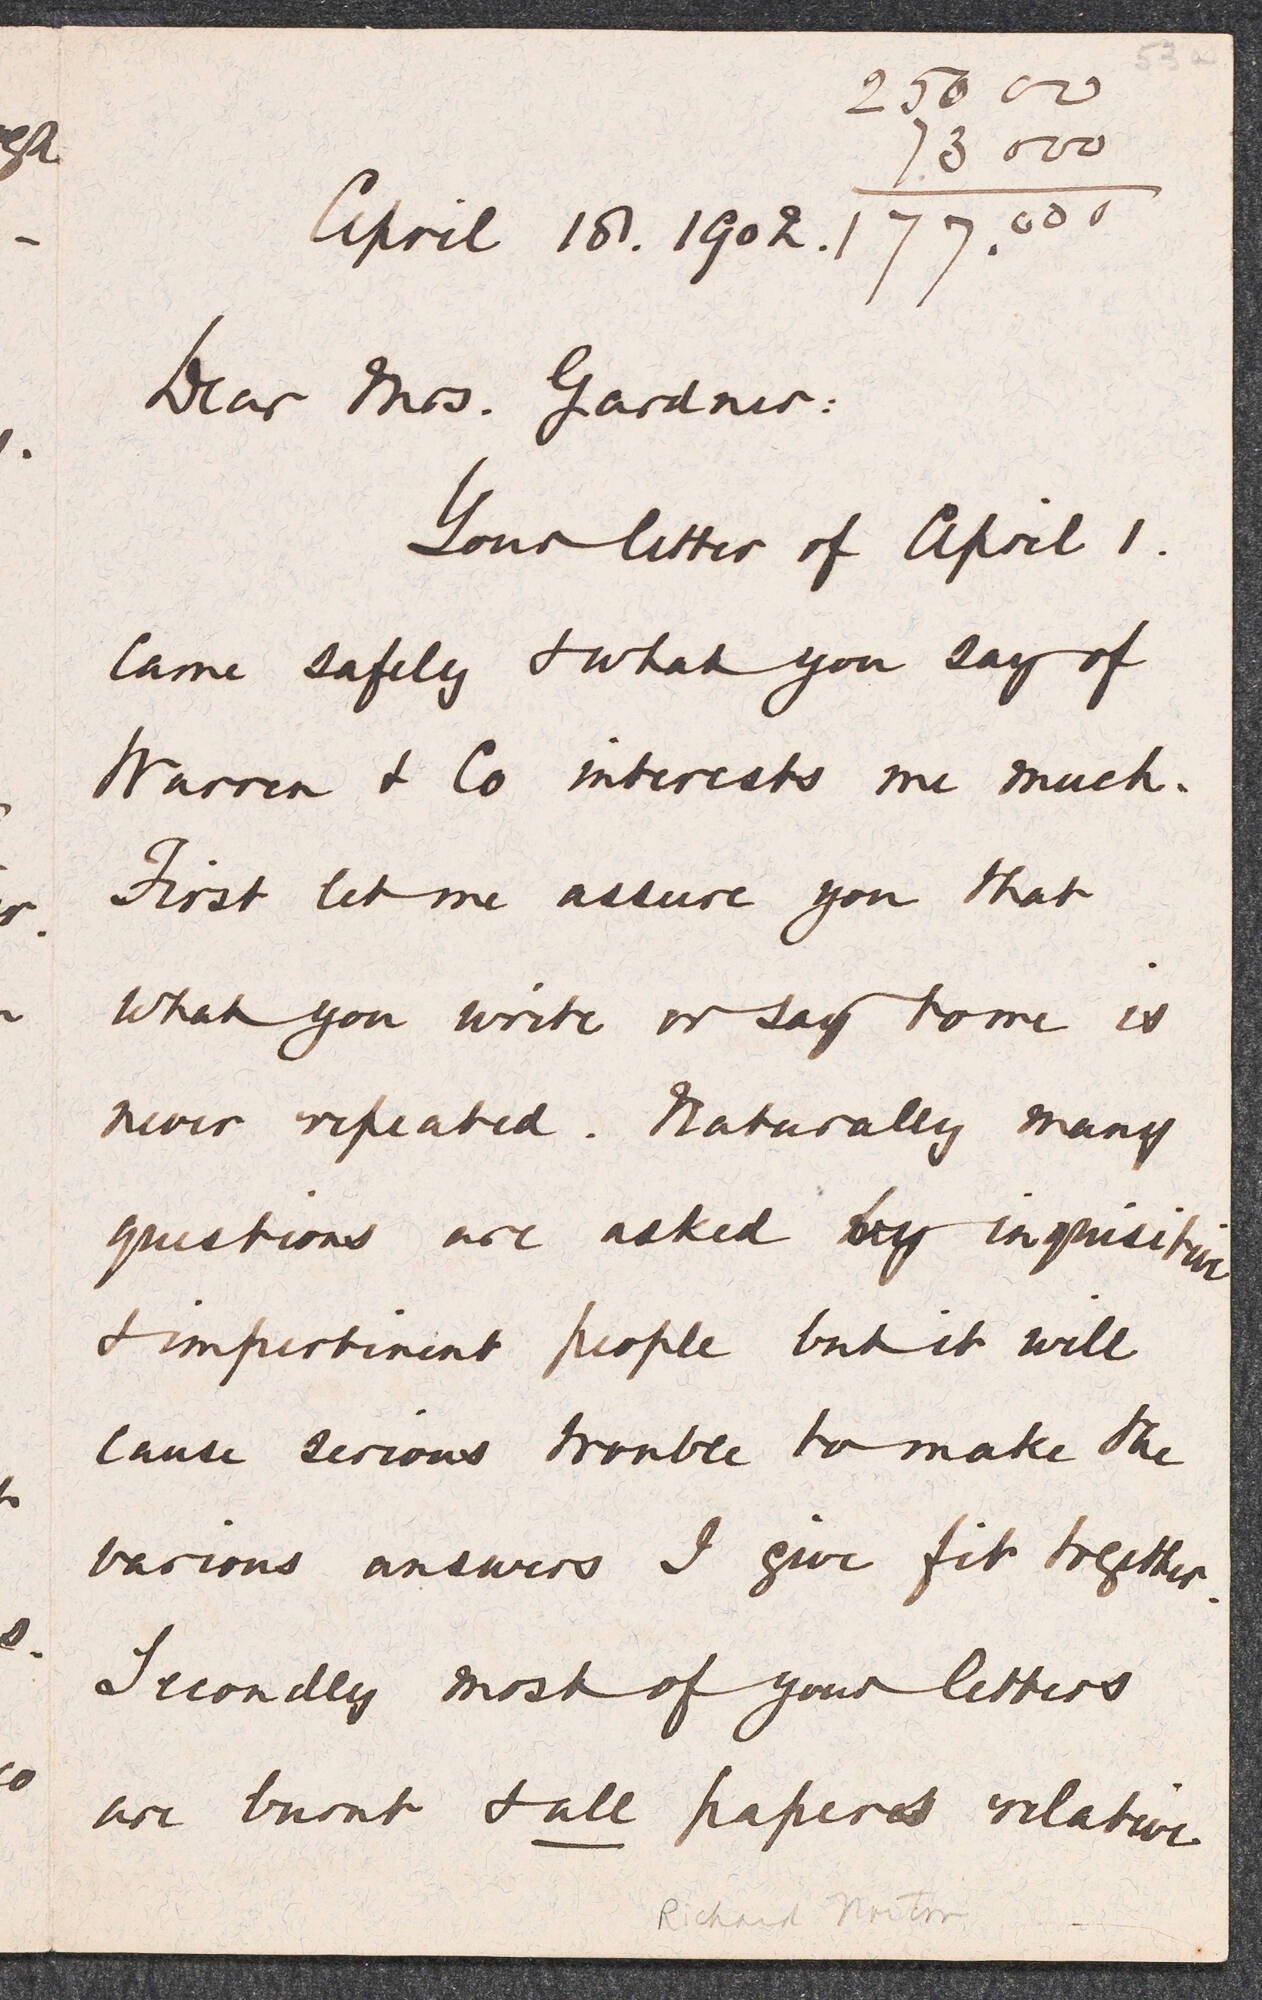 53a
250 000
73 000
177.000
April 18. 1902.
Dear Mrs. Gardner:
Your letter of April 1.
came safely & what you say of
Warren & Co interests me much.
First let me assure you that
what you write or say to me is
never repeated. Naturally many
questions are asked by inquisitive
& impertinent people but it will
cause serious trouble to make the
various answers I give fit together.
Secondly most of your letters
are burnt & all papers relative
Richard Norton